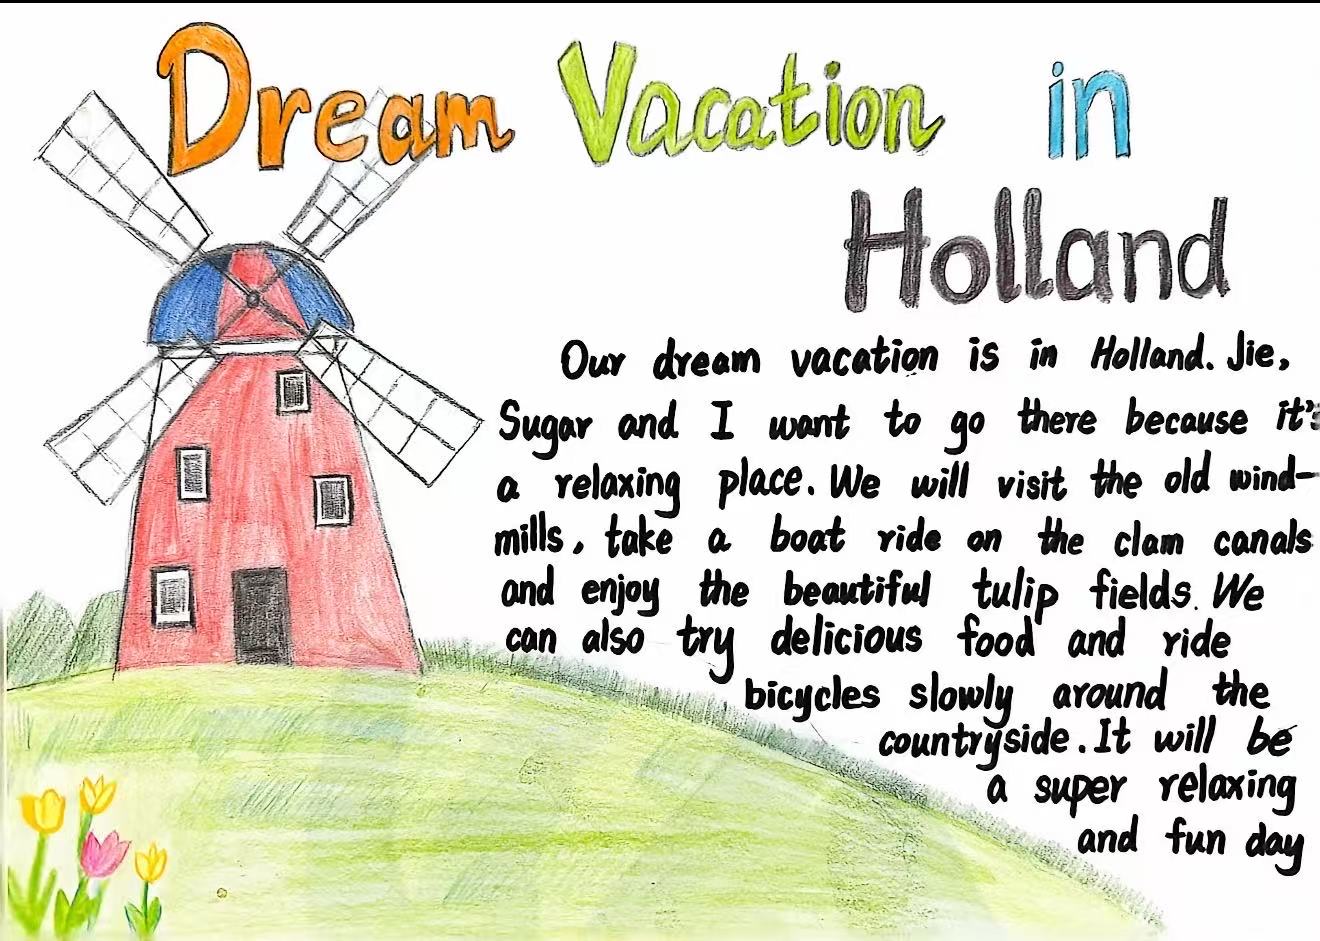 Dream Vacation in
Holland
Our dream vacation is in Holland. Jie,
Sugar and I want to go there because it's
a relaxing place. We will visit the old wind-
mills, take a boat ride on the clam canals
and enjoy the beautiful tulip fields. We
can also try delicious food and ride
bicycles slowly around the
countryside. It will be
a super relaxing
and fun day